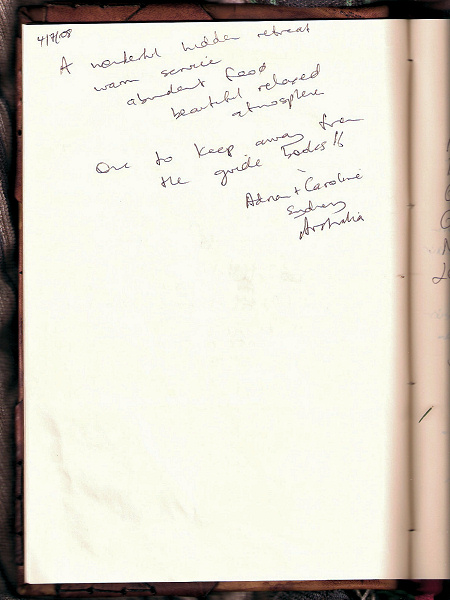 4/7/08
A wonderful hidden retreat
warm service
abundant food
beautiful relaxed
atmosphere
One to keep away from
the guide books!!
+ Caroline
Sydney
Australia